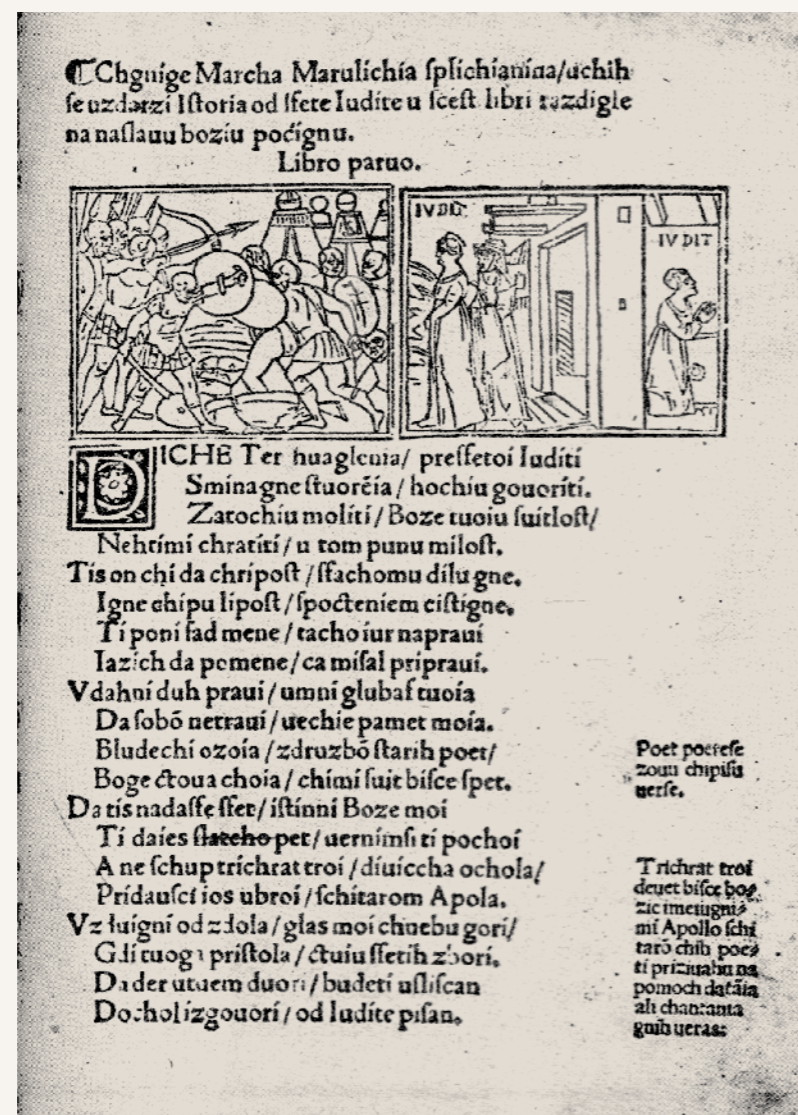 ¶Chgnige Marcha Marulichia ſplichianina/uchih
ſe uzdarzi Iſtoria od ſfete Iudite u ſceſt libri razdigle
na naſlauu boziu počignu.
Libro paruo.
IVDIT
IVDIT
DICHE Ter huaglenia/ preſſetoi Iuditi
Smina gne ſtuorēia/ hochiu gouoriti.
Zatochiu moliti/ Boze tuoiu ſuitloſt/
Nehtimi chratiti/ u tom punu miloſt.
Tis on chi da chripoſt/ ſfachomu dilu gne.
Igne chipu lipoſt/ ſpočteniem ciſtigne.
Ti poni ſad mene/ tacho iur napraui
Iazich da pomene/ ca miſal pripraui.
Vdahni duh praui/ umni glubaſ tuoia
Da ſobō netraui/ uechie pamet moia.
Bludechi ozoia/ zdruzbō ſtarih poet/
Boge čtoua choia/ chimi ſuit biſce ſpet.
Da tis nadaſſe ſfet/ iſtinni Boze moi
Ti daies ſlatcho pet/ uernimſi ti pochoi
A ne ſchup trichrat troi/ diuiccha ochola/
Pridauſci ios ubroi/ ſchitarom Apola.
Vz łuigni od zdola/ glas moi chnebu gori/
Gdi tuoga priſtola/ čtuiu ſſetih zbori.
Da der utuem duori/ budeti uſliſcan
Dochol izgouori/ od Iudite piſan.
Poet poeteſe
zouu chipiſu
uerſe.
Trichrat troi
deuet biſce bog
zic imeiugni
mi Apollo ſchi
tarō chih poe
ti priziuahu na
pomoch dataia
ali chantanta
gnih ueras: